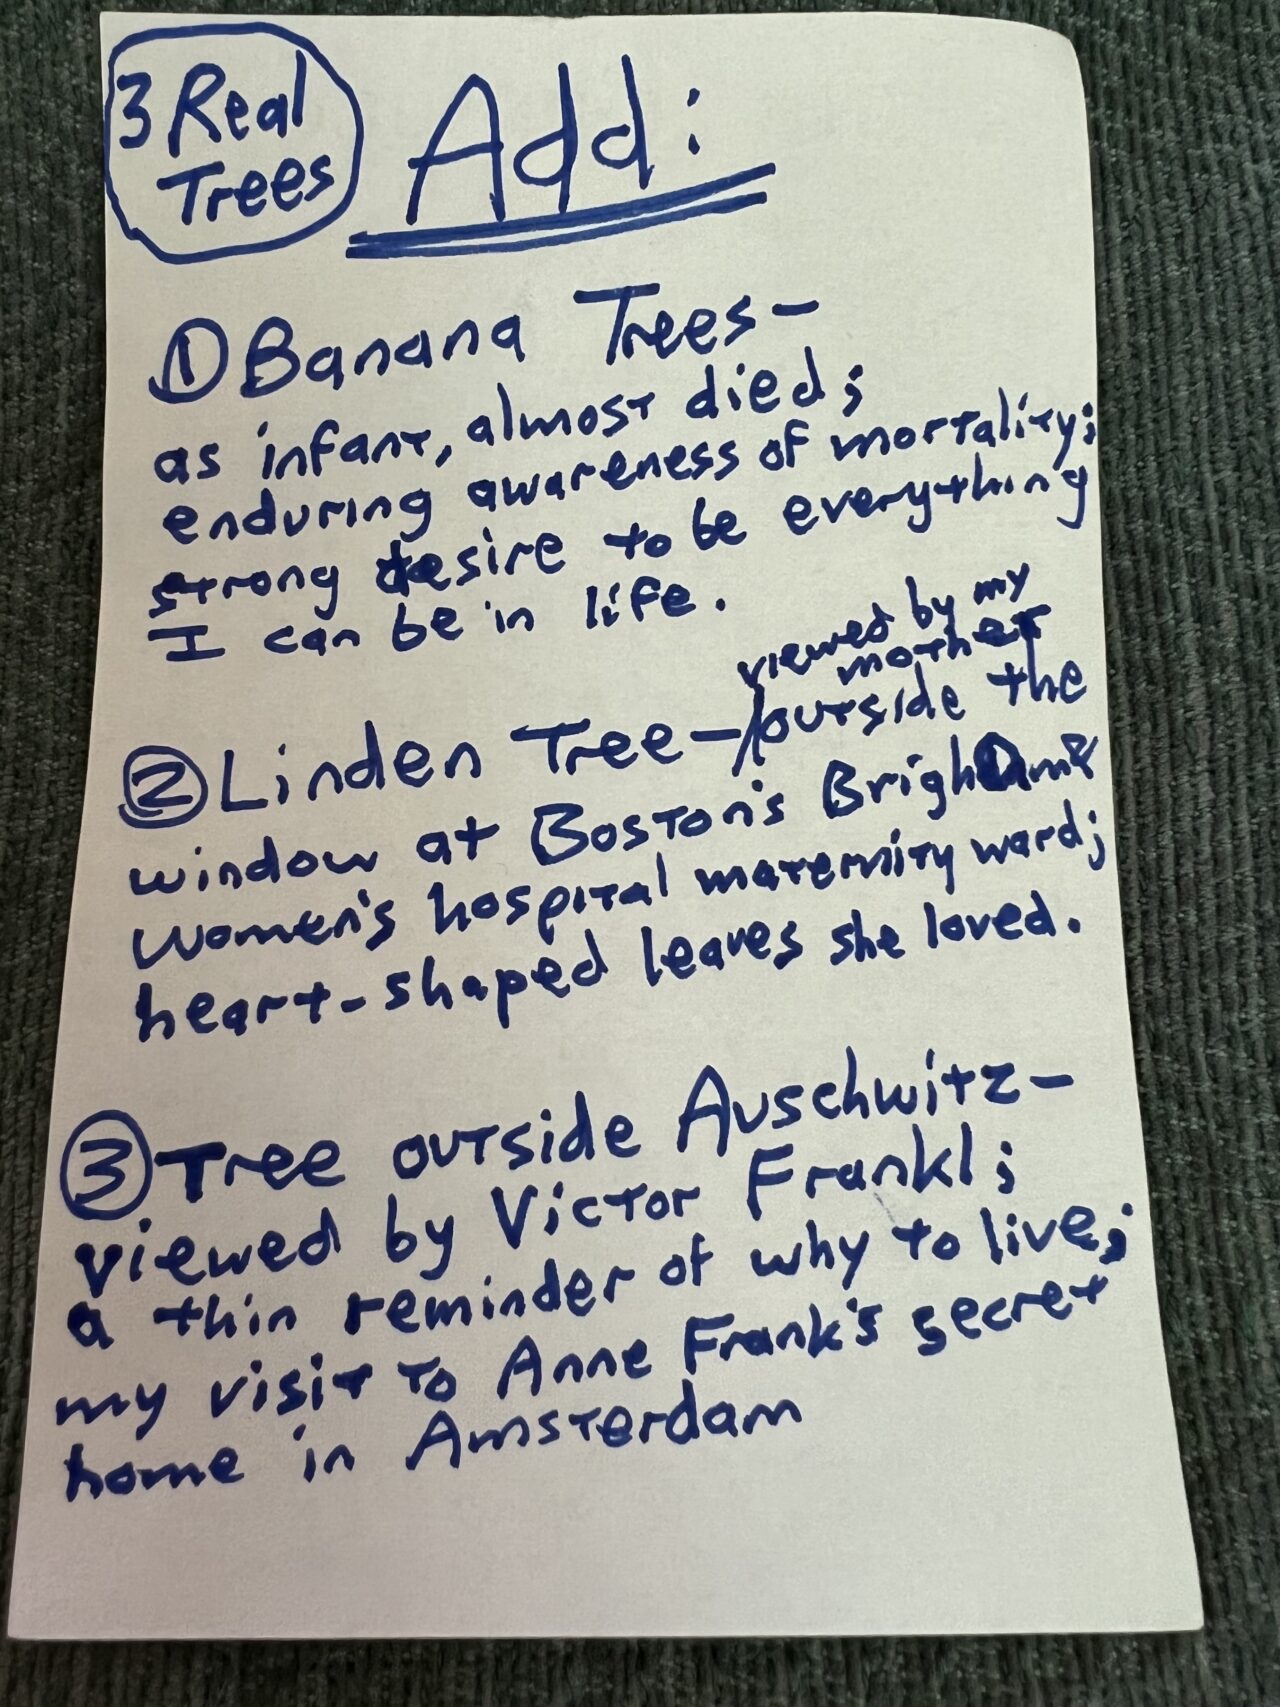 3 Real
Trees
Add:
① Banana Trees-
as infant, almost died;
enduring awareness of mortality;
strong desire to be everything
I can be in life.
viewed by my
mother
② Linden Tree-/outside the
window at Boston's Brigham &
Women's hospital maternity ward;
heart-shaped leaves she loved.
③ Tree outside Auschwitz-
viewed by Victor Frankl;
a thin reminder of why to live;
my visit to Anne Frank's secret
home in Amsterdam